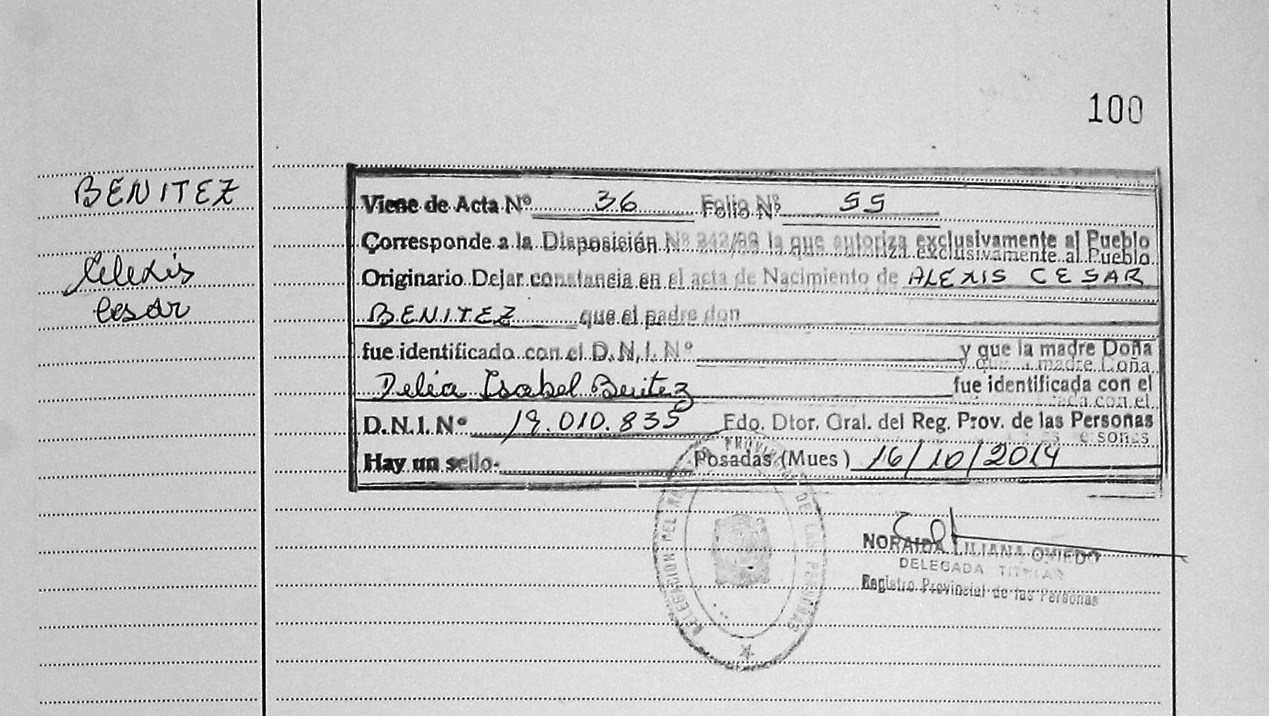 100
BENITEZ
Alexis
Cesar
Viene de Acta Nº 36 Folio Nº 55
Corresponde a la Disposición Nº 242/88 la que autoriza exclusivamente al Pueblo
Originario Dejar constancia en el acta de Nacimiento de ALEXIS CESAR
BENITEZ que el padre don
fue identificado con el D.N.I. Nº y que la madre Doña
Delia Isabel Benitez fue identificada con el
D.N.I. Nº 19.010.835 Fdo. Dtor. Gral. del Reg. Prov. de las Personas
Hay un sello- Posadas (Mnes) 16/10/2014
NORAIDA LILIANA OVIEDO
DELEGADA TITULAR
Registro Provincial de las Personas
DELEGACION DEL PROV DE LAS PERSONAS